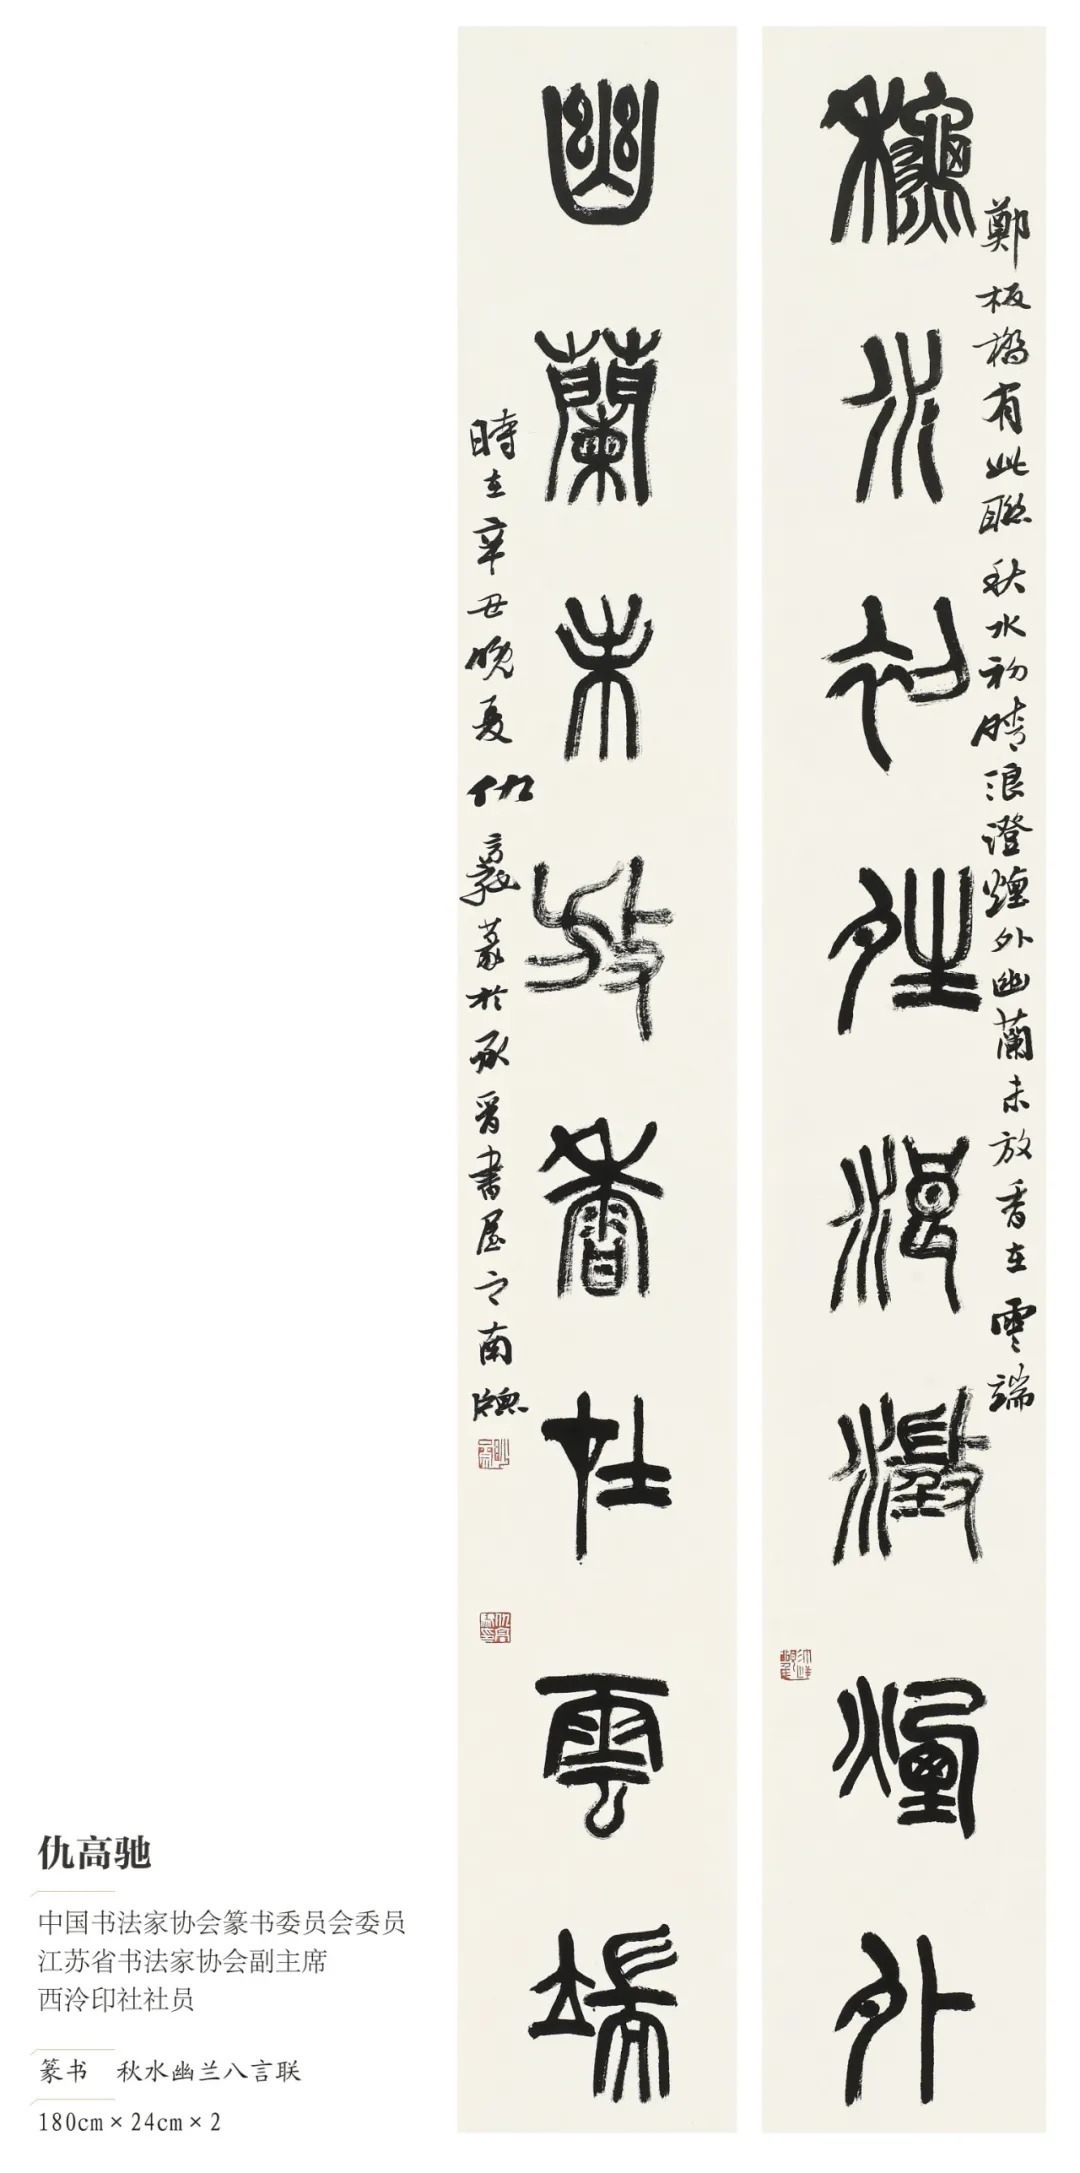 龝水初夝浪澂煙外
鄭板橋有此聯秋水初晴浪澄煙外幽蘭未放香在雲端
幽蘭未放香在雲端
時在辛丑晚夏仇高馳篆於承晉書屋之南牕
仇高驰
中国书法家协会篆书委员会委员
江苏省书法家协会副主席
西泠印社社员
篆书 秋水幽兰八言联
180cm×24cm×2